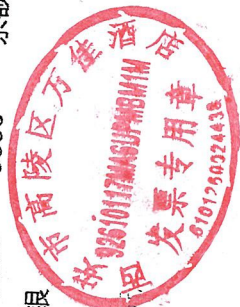 西安市高陵区万佳酒店
92610117MA6UPMBM1M
发票专用章
6101260024438